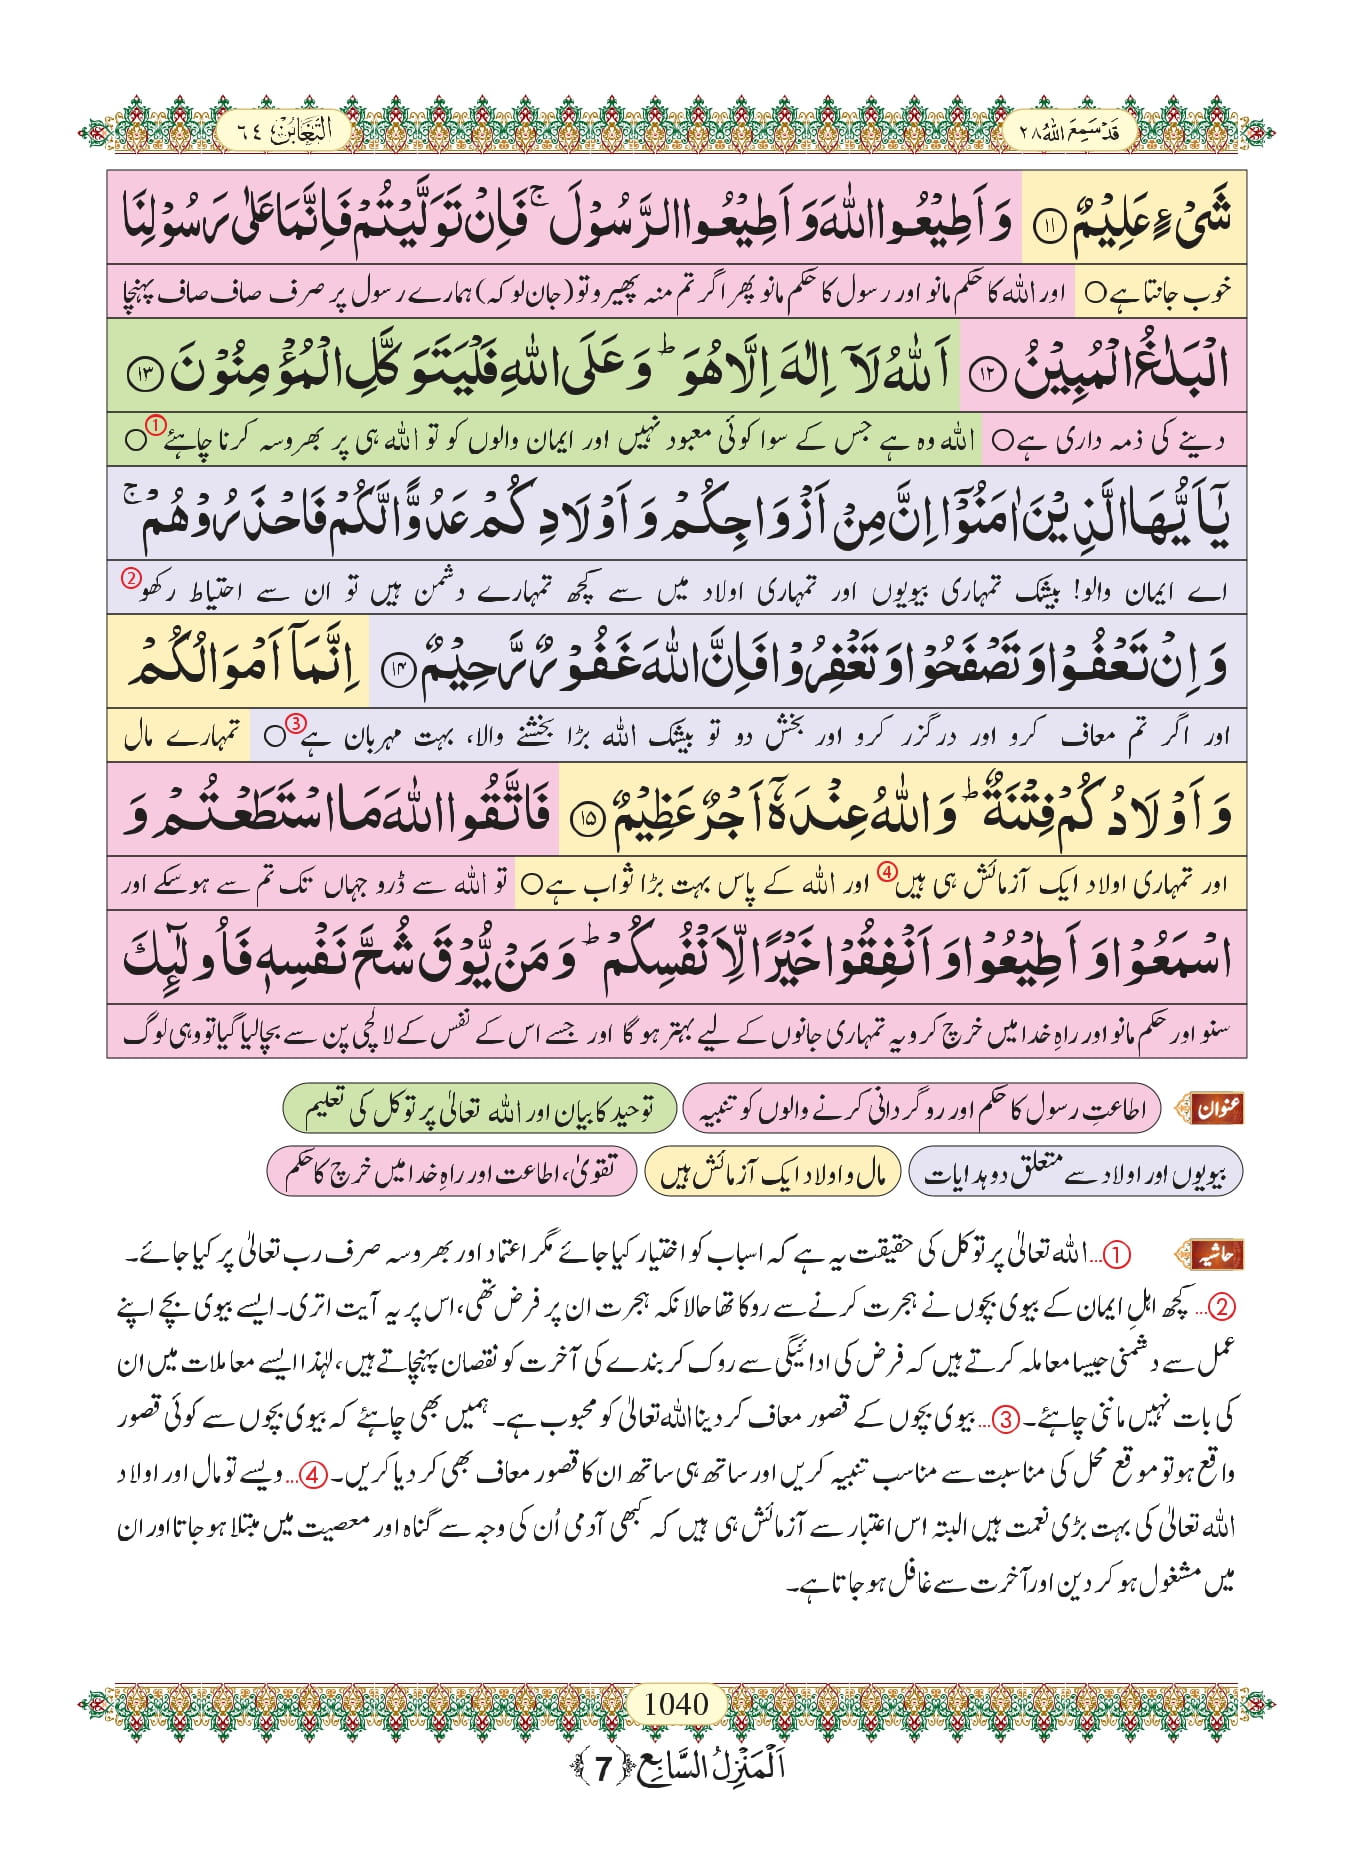 قَدْ سَمِعَ اللّٰهُ ٢٨
اَلتَّغَابُن ٦٤
شَیْءٍ عَلِیْمٌ ﴿۱۱﴾ وَ اَطِیْعُوا اللّٰهَ وَ اَطِیْعُوا الرَّسُوْلَ ۚ فَاِنْ تَوَلَّیْتُمْ فَاِنَّمَا عَلٰی رَسُوْلِنَا
خوب جانتا ہے ○ اور اللہ کا حکم مانو اور رسول کا حکم مانو پھر اگر تم منہ پھیرو تو (جان لو کہ) ہمارے رسول پر صرف صاف صاف پہنچا
الْبَلٰغُ الْمُبِیْنُ ﴿۱۲﴾ اَللّٰهُ لَاۤ اِلٰهَ اِلَّا هُوَ ؕ وَ عَلَی اللّٰهِ فَلْیَتَوَكَّلِ الْمُؤْمِنُوْنَ ﴿۱۳﴾
دینے کی ذمہ داری ہے ○ اللہ وہ ہے جس کے سوا کوئی معبود نہیں اور ایمان والوں کو تو اللہ ہی پر بھروسہ کرنا چاہئے ① ○
یٰۤاَیُّهَا الَّذِیْنَ اٰمَنُوْۤا اِنَّ مِنْ اَزْوَاجِكُمْ وَ اَوْلَادِكُمْ عَدُوًّا لَّكُمْ فَاحْذَرُوْهُمْ ۚ
اے ایمان والو! بیشک تمہاری بیویوں اور تمہاری اولاد میں سے کچھ تمہارے دشمن ہیں تو ان سے احتیاط رکھو ②
وَ اِنْ تَعْفُوْا وَ تَصْفَحُوْا وَ تَغْفِرُوْا فَاِنَّ اللّٰهَ غَفُوْرٌ رَّحِیْمٌ ﴿۱۴﴾ اِنَّمَاۤ اَمْوَالُكُمْ
اور اگر تم معاف کرو اور درگزر کرو اور بخش دو تو بیشک اللہ بڑا بخشنے والا، بہت مہربان ہے ③ ○ تمہارے مال
وَ اَوْلَادُكُمْ فِتْنَةٌ ؕ وَ اللّٰهُ عِنْدَهٗۤ اَجْرٌ عَظِیْمٌ ﴿۱۵﴾ فَاتَّقُوا اللّٰهَ مَا اسْتَطَعْتُمْ وَ
اور تمہاری اولاد ایک آزمائش ہی ہیں ④ اور اللہ کے پاس بہت بڑا ثواب ہے ○ تو اللہ سے ڈرو جہاں تک تم سے ہو سکے اور
اسْمَعُوْا وَ اَطِیْعُوْا وَ اَنْفِقُوْا خَیْرًا لِّاَنْفُسِكُمْ ؕ وَ مَنْ یُّوْقَ شُحَّ نَفْسِهٖ فَاُولٰٓىِٕكَ
سنو اور حکم مانو اور راہِ خدا میں خرچ کرو یہ تمہاری جانوں کے لیے بہتر ہو گا اور جسے اس کے نفس کے لالچی پن سے بچا لیا گیا تو وہی لوگ
عنوان اطاعتِ رسول کا حکم اور روگردانی کرنے والوں کو تنبیہ توحید کا بیان اور اللہ تعالیٰ پر توکل کی تعلیم
بیویوں اور اولاد سے متعلق دو ہدایات مال و اولاد ایک آزمائش ہیں تقویٰ، اطاعت اور راہِ خدا میں خرچ کا حکم
حاشیہ ①... اللہ تعالیٰ پر توکل کی حقیقت یہ ہے کہ اسباب کو اختیار کیا جائے مگر اعتماد اور بھروسہ صرف رب تعالیٰ پر کیا جائے۔
②... کچھ اہلِ ایمان کے بیوی بچوں نے ہجرت کرنے سے روکا تھا حالانکہ ہجرت ان پر فرض تھی، اس پر یہ آیت اتری۔ ایسے بیوی بچے اپنے
عمل سے دشمنی جیسا معاملہ کرتے ہیں کہ فرض کی ادائیگی سے روک کر بندے کی آخرت کو نقصان پہنچاتے ہیں، لہٰذا ایسے معاملات میں ان
کی بات نہیں ماننی چاہئے۔ ③... بیوی بچوں کے قصور معاف کر دینا اللہ تعالیٰ کو محبوب ہے۔ ہمیں بھی چاہئے کہ بیوی بچوں سے کوئی قصور
واقع ہو تو موقع محل کی مناسبت سے مناسب تنبیہ کریں اور ساتھ ہی ساتھ ان کا قصور معاف بھی کر دیا کریں۔ ④... ویسے تو مال اور اولاد
اللہ تعالیٰ کی بہت بڑی نعمت ہیں البتہ اس اعتبار سے آزمائش ہی ہیں کہ کبھی آدمی اُن کی وجہ سے گناہ اور معصیت میں مبتلا ہو جاتا اور ان
میں مشغول ہو کر دین اور آخرت سے غافل ہو جاتا ہے۔
1040
اَلْمَنْزِلُ السَّابِع ﴿7﴾